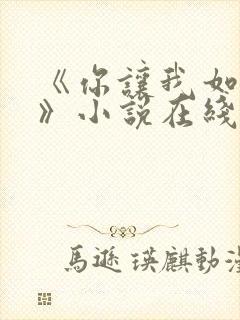 《你讓我如
》小說在綫
馬遜瑛麒動漫